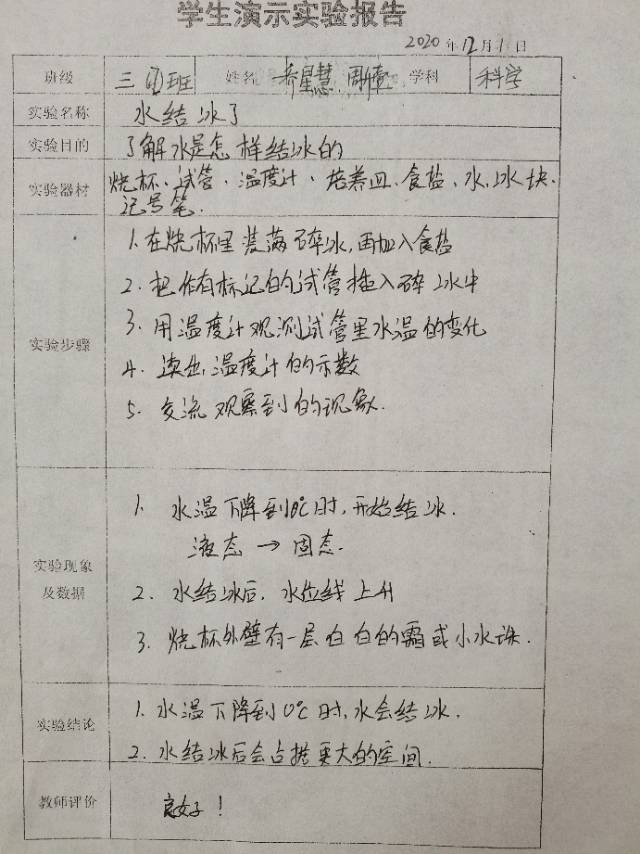 学生演示实验报告
2020年12月1日
班级 三(1)班 姓名 乔星慧、周 学科 科学
实验名称 水结冰了
实验目的 了解水是怎样结冰的
实验器材 烧杯、试管、温度计、培养皿、食盐、水、冰块、
记号笔.
实验步骤
1.在烧杯里装满碎冰,再加入食盐
2.把作有标记的试管插入碎冰中
3.用温度计观测试管里水温的变化
4.读出温度计的示数
5.交流观察到的现象.
实验现象
及数据
1.水温下降到0℃时,开始结冰.
液态→固态.
2.水结冰后,水位线上升
3.烧杯外壁有一层白白的霜或小水珠.
实验结论
1.水温下降到0℃时,水会结冰.
2.水结冰后会占据更大的空间.
教师评价 良好!